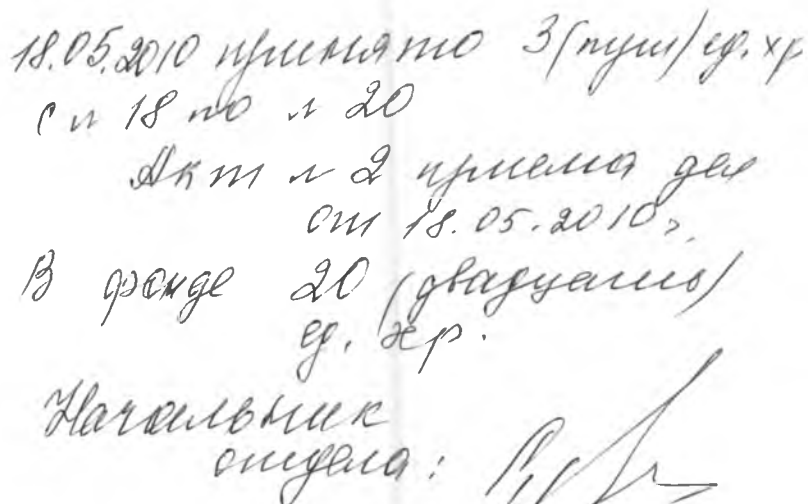 18.05.2010 принято 3 (три) ед. хр
с № 18 по № 20
Акт № 2 приема дел
от 18.05.2010г.
В фонде 20 (двадцать)
ед. хр.
Начальник
отдела: